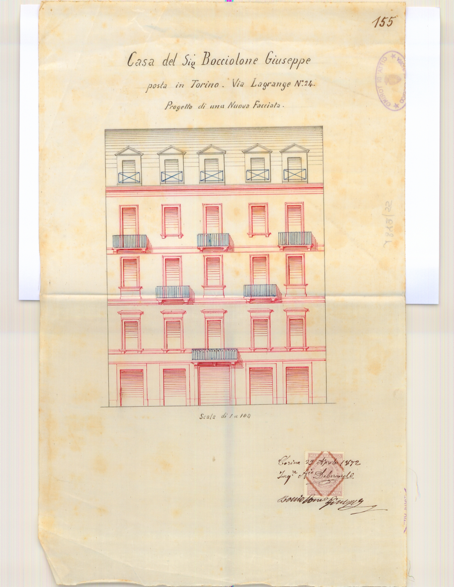 155
Casa del Sig Bocciolone Giuseppe
posta in Torino. Via Lagrange N° 24.
Progetto di una Nuova Facciata.
Scala di 1 a 100
Torino Aprile 1872